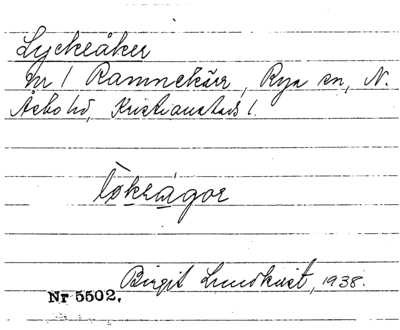 Lyckeåker
Nr 1 Ramnekärr, Rya sn, N.
Åsbo hd, Kristianstads l.
lø̀krågor
Birgit Lundkvist, 1938.
Nr 5502.